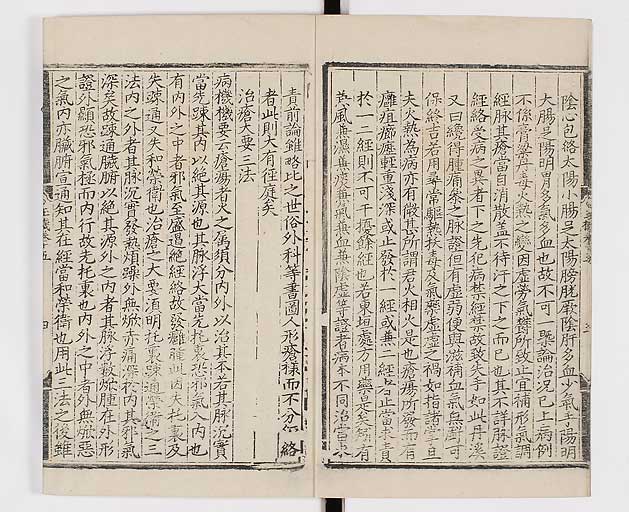 陰心包絡太陽小腸足太陽膀胱厥陰肝多血少氣手陽明
大腸足陽明胃多氣多血也故不可一槩論治况已上病例
不係膏粱丹毒火熱之變因虛勞氣鬱所致止宜補形氣調
經脉其瘡當自消散蓋不待汗之下之而已也其不詳脉證
經絡受病之異者下之先犯病禁經禁故致失手如此丹溪
又曰纔得腫痛叅之脉證但有虛弱便與滋補血氣無虧可
保終吉若用尋常驅熱拔毒及氣藥虛虛之禍如指諸掌
夫火熱為病亦有微甚所謂君火相火是也瘡瘍所發而有
癰疽癤痤輕重淺深或止發於一經或兼二經止當求責
於一二經則不可干擾餘經也若東垣處方用藥是矣
熱風兼濕兼痰兼氣兼血兼陰虛等證者病本不同治當
責前論雖略比之世俗外科等書圖人形瘡樣而不分經絡
者此則大有徑庭矣
治瘡大要三法
病機機要云瘡瘍者火之屬須分内外以治其本若其脉沉實
當先踈其内以絶其源也其脉浮大當先托裏恐邪氣入内也
有内外之中者邪氣至盛遏絶經絡故發癰腫此因失托裏及
失踈通又失和榮衛也治瘡之大要須明托裏踈通榮衛之三
法内之外者其脉沉實發熱煩躁外無焮赤痛深於内其邪氣
深矣故踈通臟腑以絶其源外之内者其脉浮數焮腫在外形
證外顯恐邪氣極而内行故先托裏也内外之中者外無焮惡
之氣内亦臟腑宣通知其在經當和榮衛也用此三法之後雖
四